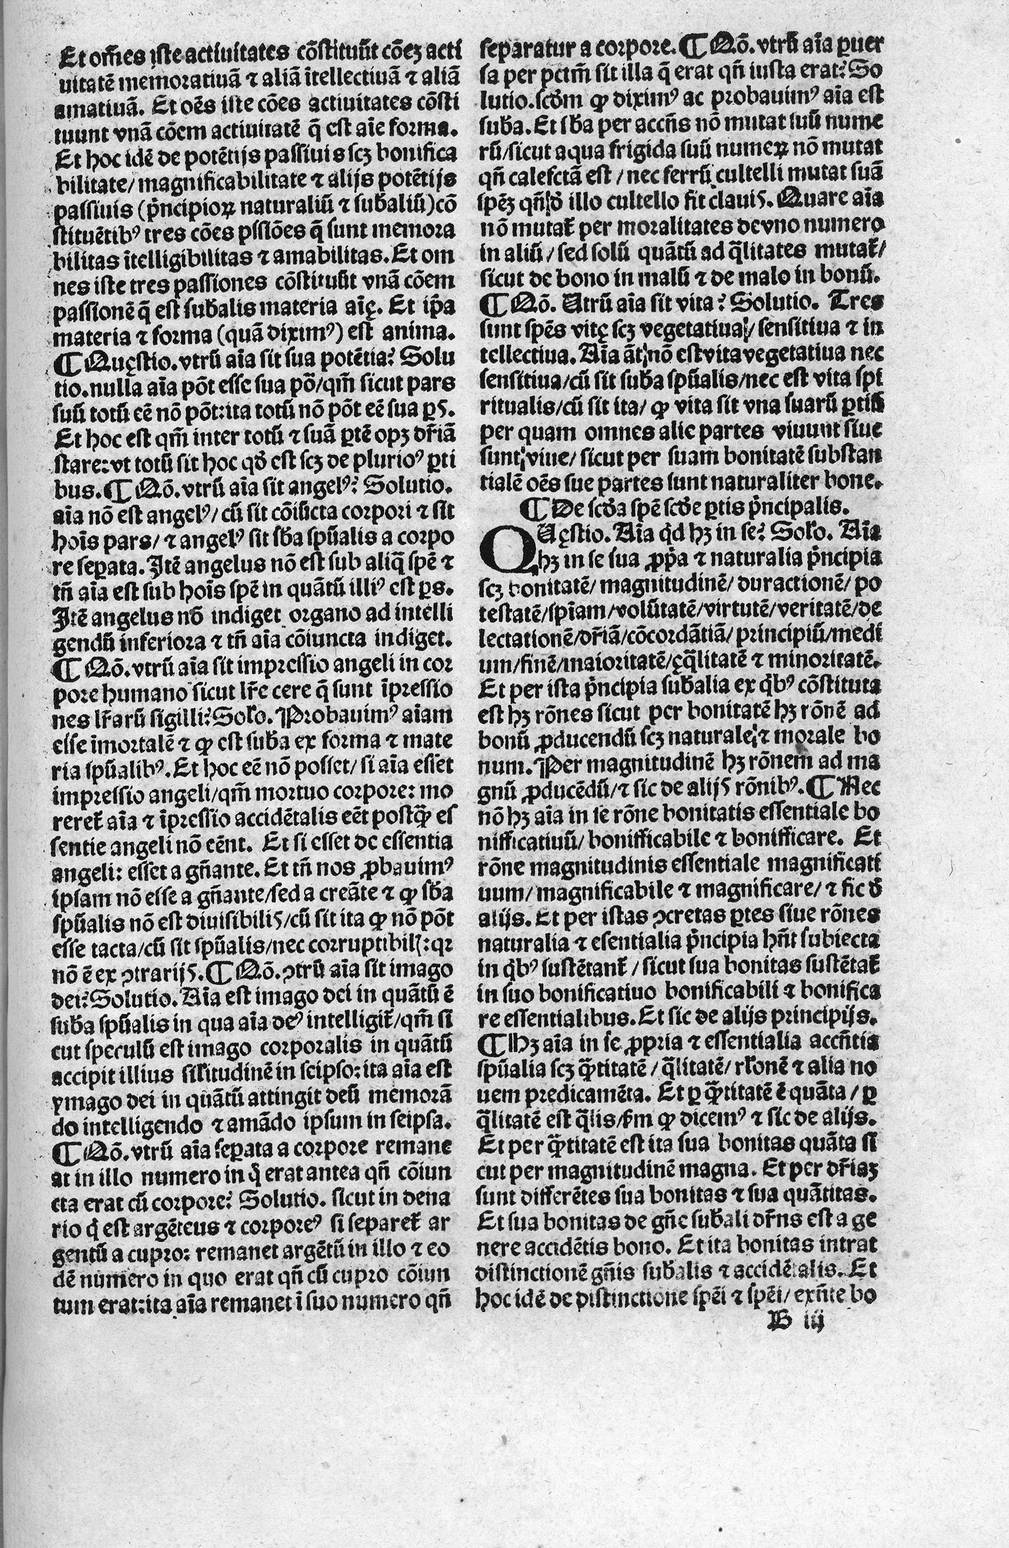 Et om̃es iste actiuitates cõstituũt cõeȝ acti
uitatẽ memoratiuã ⁊ aliã ĩtellectiuã ⁊ aliã
amatiuã. Et oẽs iste cões actiuitates cõsti
tuunt vnã cõem actiuitatẽ q̃ est aĩe forma.
Et hoc idẽ de potẽtijs passiuis scȝ bonifica
bilitate/ magnificabilitate ⁊ alijs potẽtijs
passiuis (p̃ncipioꝝ naturaliũ ⁊ sub̃aliũ) cõ
stituẽtibꝰ tres cões pssiões q̃ sunt memora
bilitas ĩtelligibilitas ⁊ amabilitas. Et om
nes iste tres passiones cõstituũt vnã cõem
passionẽ q̃ est sub̃alis materia aĩę. Et ip̃a
materia ⁊ forma (quã diximꝰ) est anima.
¶ Quęstio. vtrũ aĩa sit sua potẽtia? Solu
tio. nulla aĩa põt esse sua põ/ qm̃ sicut pars
suũ totũ eẽ nõ põt: ita totũ nõ põt eẽ sua ꝑs.
Et hoc est qm̃ inter totũ ⁊ suã ꝑtẽ opȝ dr̃iã
stare: vt totũ sit hoc qđ est scȝ de plurioꝰ ꝑti
bus. ¶ Q̃õ. vtrũ aĩa sit angelꝰ? Solutio.
aĩa nõ est angelꝰ/ cũ sit cõiũcta corpori ⁊ sit
hoĩs pars/ ⁊ angelꝰ sit sb̃a spũalis a corpo
re seꝑata. Itẽ angelus nõ est sub aliq̃ spẽ ⁊
tñ aĩa est sub hoĩs spẽ in quãtũ illiꝰ est ꝑs.
Itẽ angelus nõ indiget organo ad intelli
gendũ inferiora ⁊ tñ aĩa cõiuncta indiget.
¶ Q̃õ. vtrũ aĩa sit impressio angeli in cor
pore humano sicut lr̃e cere q̃ sunt ĩpressio
nes lr̃arũ sigilli? Solo. Probauimꝰ aĩam
esse ĩmortalẽ ⁊ ꝙ est suba ex forma ⁊ mate
ria spũalibꝰ. Et hoc eẽ nõ posset/ si aĩa esset
impressio angeli/ qm̃ mortuo corpore: mo
reret̃ aĩa ⁊ ĩpressio accidẽtalis eẽt postꝙ̃ es
sentie angeli nõ eẽnt. Et si esset de essentia
angeli: esset a gñante. Et tñ nos ꝓbauimꝰ
ipsam nõ esse a gñante/ sed a creãte ⁊ ꝙ sb̃a
spũalis nõ est diuisibilis/ cũ sit ita ꝙ nõ põt
esse tacta/ cũ sit spũalis/ nec corruptibil̃: qꝛ
nõ ẽ ex ↄtrarijs. ¶ Q̃õ. vtrũ aĩa sit imago
dei? Solutio. Aĩa est imago dei in quãtũ ẽ
suba spũalis in qua aĩa deꝰ intelligit̃/ qm̃ si
cut speculũ est imago corporalis in quãtũ
accipit illius silitudinẽ in seipso: ita aĩa est
ymago dei in quãtũ attingit deũ memorã
do intelligendo ⁊ amãdo ipsum in seipsa.
¶ Q̃õ. vtrũ aĩa seꝑata a corpore remane
at in illo numero in q̃ erat antea qñ cõiun
cta erat cũ corpore? Solutio. sicut in dena
rio q̃ est argẽteus ⁊ corporeꝰ si separet̃ ar
gentũ a cupro: remanet argẽtũ in illo ⁊ eo
dẽ numero in quo erat qñ cũ cupro cõiun
tum erat: ita aĩa remanet ĩ suo numero qñ
separatur a corpore. ¶ Q̃õ. vtrũ aĩa ꝑuer
sa per pctm̃ sit illa q̃ erat qñ iusta erat? So
lutio. scđm ꝙ diximꝰ ac probauimꝰ aĩa est
suba. Et sba per accñs nõ mutat suũ nume
rũ/ sicut aqua frigida suũ numeꝝ nõ mutat
qñ calefctã est/ nec ferrũ cultelli mutat suã
spẽȝ qñ de illo cultello fit clauis. Quare aĩa
nõ mutat̃ per moralitates de vno numero
in aliũ/ sed solũ quãtũ ad q̃litates mutat̃/
sicut de bono in malũ ⁊ de malo in bonũ.
¶ Q̃õ. Utrũ aĩa sit vita? Solutio. Tres
sunt spẽs vitę scȝ vegetatiua/ sensitiua ⁊ in
tellectiua. Aĩa ãt nõ est vita vegetatiua nec
sensitiua/ cũ sit suba spũalis/ nec est vita spi
ritualis/ cũ sit ita/ ꝙ vita sit vna suarũ ꝑtiũ
per quam omnes alie partes viuunt siue
sunt viue/ sicut per suam bonitatẽ substan
tialẽ oẽs sue partes sunt naturaliter bone.
¶ De scđa spẽ scđe ꝑtis p̃ncipalis.
QUęstio. Aĩa qđ hȝ in se? Solo. Aĩa
hȝ in se sua ꝓp̃a ⁊ naturalia p̃ncipia
scȝ bonitatẽ/ magnitudinẽ/ duractionẽ/ po
testatẽ/ spĩam/ volũtatẽ/ virtutẽ/ veritatẽ/ de
lectationẽ/ dr̃iã/ cõcordãtiã/ principiũ/ medi
um/ finẽ/ maioritatẽ/ ęq̃litatẽ ⁊ minoritatẽ.
Et per ista p̃ncipia subalia ex q̃bꝰ cõstituta
est hȝ rõnes sicut per bonitatẽ hȝ rõnẽ ad
bonũ ꝓducendũ scȝ naturale ⁊ morale bo
num. Per magnitudinẽ hȝ rõnem ad ma
gnũ ꝓducẽdũ/ ⁊ sic de alijs rõnibꝰ. ¶ Nec
nõ hȝ aĩa in se rõne bonitatis essentiale bo
nifficatiuũ/ bonifficabile ⁊ bonifficare. Et
rõne magnitudinis essentiale magnificati
uum/ magnificabile ⁊ magnificare/ ⁊ sic đ
alijs. Et per istas ↄcretas ꝑtes siue rões
naturalia ⁊ esentialia p̃ncipia hñt subiecta
in q̃bꝰ sustẽtant̃/ sicut sua bonitas sustẽtat̃
in suo bonificatiuo bonificabili ⁊ bonifica
re essentialibus. Et sic de alijs principijs.
¶ Hȝ aĩa in se ꝓpria ⁊ essentialia accñtia
spũalia scȝ q̃titatẽ/ q̃litatẽ/ rlonẽ ⁊ alia no
uem predicamẽta. Et ꝑ q̃titatẽ ẽ quãta/ ꝑ
q̃litatẽ est q̃lis/ fm ꝙ dicemꝰ ⁊ sic de alijs.
Et per q̃titatẽ est ita sua bonitas quãta si
cut per magnitudinẽ magna. Et per dr̃iaȝ
sunt differẽtes sua bonitas ⁊ sua quãtitas.
Et sua bonitas de gñe subali dr̃ns est a ge
nere accidẽtis bono. Et ita bonitas intrat
distinctionẽ gñis subalis ⁊ accidẽtalis. Et
hoc idẽ de distinctione spẽi ⁊ spẽi/ exñte bo
B iij